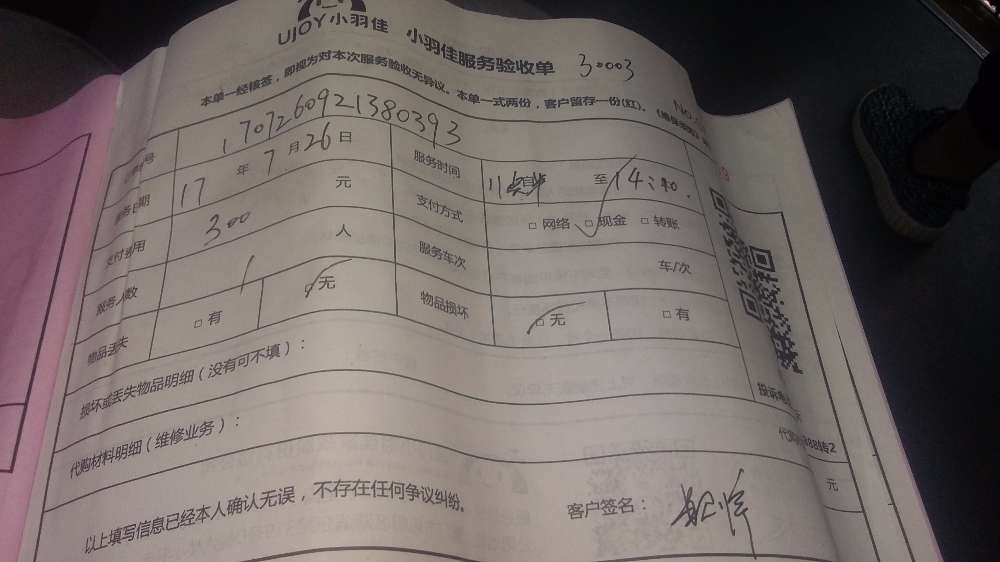 UJOY小羽佳 小羽佳服务验收单 30003
本单一经核签，即视为对本次服务验收无异议。本单一式两份，客户留存一份(红)。
No.
号 1707260921380393
务日期 17 年 7 月 26 日 服务时间 11 至 14:
支付费用 300 元 支付方式 □ 网络 □ 现金 □ 转账
服务人数 1 人 服务车次 车/次
物品丢失 □ 有 □ 无 物品损坏 □ 无 □ 有
损坏或丢失物品明细（没有可不填）：
投诉
代购材料明细（维修业务）：
88转2
元
以上填写信息已经本人确认无误，不存在任何争议纠纷。 客户签名：